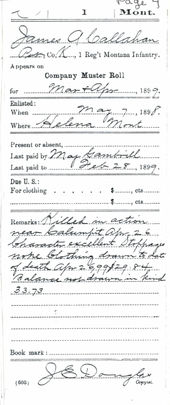 Page 4
1 Mont.
James A. Callahan
Pvt, Co. K, 1 Reg't Montana Infantry.
Appears on
Company Muster Roll
for Mar & Apr, 1899.
Enlisted:
When May 7, 1898.
Where Helena Mont
Present or absent,
Last paid by Maj Gambrill
Last paid to Feb 28, 1899.
Due U. S.:
For clothing $ cts
$ cts
Remarks: Killed in action
near Calumpit Apr. 26
Character excellent Stoppages
none Clothing drawn to date
of death Apr 26 99 $29.84
Balance not drawn in kind
33.73
Book mark:
J. E. Douglas
(603) Copyist.